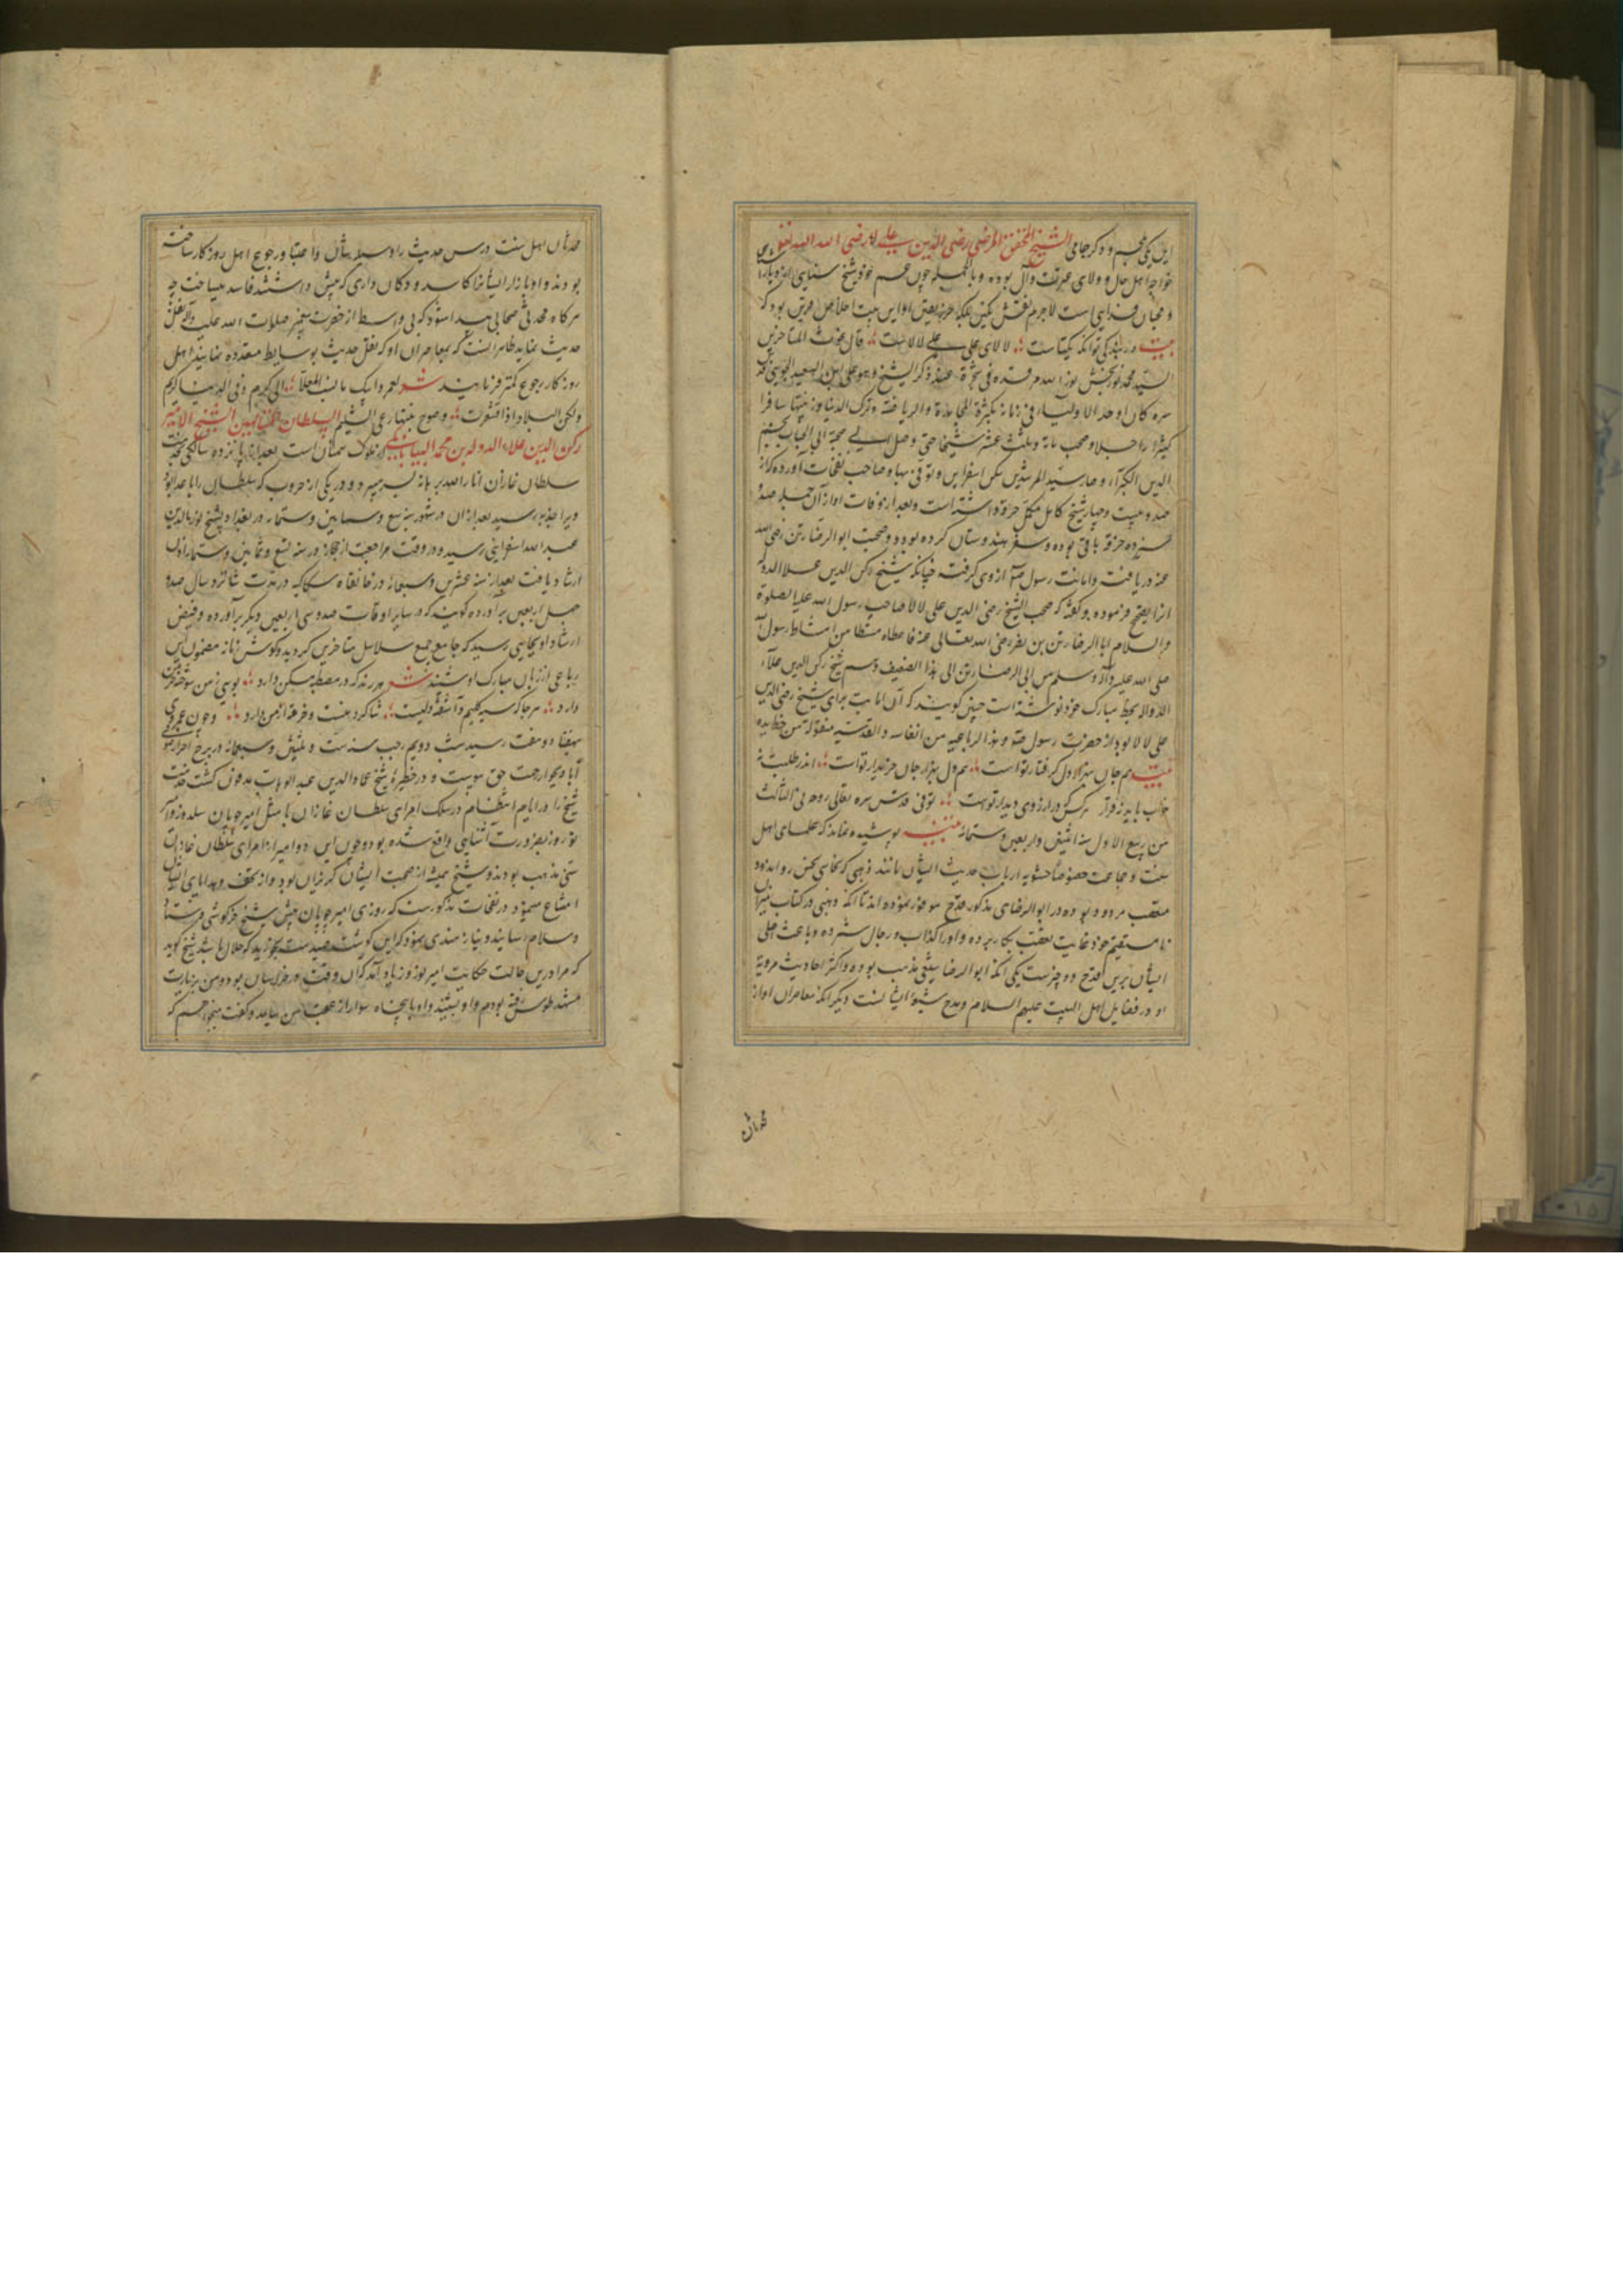 این یکی جم و دکر جامی الشیخ المحقق المرتضی رضی الدین علی لالا رضی الله
خواجه اهل حال و ولای عترت و آل بوده و بالجمله چون عم خود شیخ سنایی از
و محبان فدایی است لاجرم نقش نکین بلکه حرز یقین او این بیت اخلاص قرین بود که
بیت در بندکی تو آنکه یکتاست لالای علی علی لالاست قال غوث المتاخرین
السید محمد نوربخش نور الله مرقده فی شجرة عند ذکر الشیخ وهو علی ابن السعید الجوینی قدس
سره کان اوحد الاولیاء فی زمانه بکثرة المجاهدة والریاضة وترک الدنیا وزینتها سافر
کثیرا راجلا وصحب مائة وثلث عشر شیخا حتی وصل الی صحبة ابی الجناب نجم
الدین الکبری وصار سید المرشدین سکن اسفراین وتوفی بها و صاحب نفحات آورده که از
صد و بیست و چهار شیخ کامل مکمل خرقه داشته است و بعد از وفات او از آن جمله صد و
سیزده خرقه باقی بوده و سفر هندوستان کرده بود و صحبت ابو الرضا رتن رضی الله
عنه دریافت و امانت رسول ص از وی کرفت چنانکه شیخ رکن الدین علاالدوله
آنرا تصحیح فرموده و کفته که صحب الشیخ رضی الدین علی لالا صاحب رسول الله علیه الصلوة
والسلام ابا الرضا رتن بن نصر رضی الله تعالی عنه فاعطاه مشطا من امشاط رسول الله
صلی الله علیه وآله وسلم من ابی الرضا رتن الی هذا الضعیف وهم شیخ رکن الدین علاء
الدوله بخط مبارک خود نوشته است چنین کویند که آن امانت برای شیخ رضی الدین
علی لالا بود از حضرت رسول ص و هذا الرباعیه من انفاسه القدسیة منقوله من خط یده
بیت هم جان بهزار دل کرفتار تو است هم دل بهزار جان خریدار تو است اندر طلبت نه
خواب یابد نه قرار هر کس که در آرزوی دیدار تو است توفی قدس سره تعالی روحه فی الثالث
من ربیع الاول سنه اثنین و اربعین و ستمائه پوشیده نماند که علمای اهل
سنت و جماعت خصوصا حشویه ارباب حدیث ایشان مانند ذهبی که
متعصب مردود بوده در ابو الرضای مذکور قدح موفور نموده اند تا آنکه ذهبی در کتاب میزان
نامستقیم خود غایت تعصب بکار برده و او را کذاب و رجال شمرده و باعث اصلی
ایشان برین قدح دو چیزست یکی آنکه ابو الرضا شیعی مذهب بوده و اکثر احادیث مرویه
او در فضایل اهل البیت علیهم السلام و مدح شیعه ایشان است دیگر آنکه معاصران او از
محدثان اهل سنت درس حدیث را وسیله شان و اعتبار و رجوع اهل روزکار ساخته
بودند و او بازار ایشانرا کاسد و دکان داری که پیش داشتند فاسد میساخت چه
هرکاه محدثی صحابی پیدا شود که بی واسطه از حضرت پیغمبر صلوات الله علیه وآله نقل
حدیث نماید ظاهر است که بمعاصران او که نقل حدیث بوسایط متعدده نمایند اهل
روزکار رجوع کمتر فرمایند شعر لعمر ابیک ما نسب المعلا الی کرم و فی الدنیا کریم
ولکن البلاد اذا اقشعرت وصوح نبتها رعی الهشیم السلطان المتالهین الشیخ الامیر
رکن الدین علاء الدوله بن محمد البیابانکی از ملوک سمنان است بعد از پانزده سالکی بخدمت
سلطان غازان انار الله برهانه بسر میبرد و در یکی از حروب که سلطان را با عدا بود
ویرا جذبه رسید بعد از آن در شهور سنه سبع و ثمانین و ستمائه در بغداد بشیخ نور الدین
عبد الله اسفراینی رسید و در وقت مراجعت از حجاز در سنه تسع و ثمانین و ستمائه اذن
ارشاد یافت بعد از سنه عشرین و سبعمائه در خانقاه سکاکیه در مدت شانزده سال صد و
چهل اربعین برآورده کویند که در سایر اوقات صد و سی اربعین دیکر برآورده و فیض
ارشاد او بجایی رسید که جامع جمیع سلاسل متاخرین کردید و کوش زمانه مضمون این
رباعی از زبان مبارک او شنید شعر هر رند که در مصطبه مسکن دارد بویی ز من سوخته خرمن
دارد هر جا که سیه کلیم و آشفته دلیست شاکرد منست و خرقه از من دارد و چون عمر وی
بهفتاد و هفت رسید شب دویم رجب سنه ست و ثلثین و سبعمائه در برج احرار صوفی
آباد بجوار رحمت حق پیوست و در حظیره شیخ عماد الدین عبد الوهاب مدفون کشت حضرت
شیخ را در ایام انتظام در سلک امرای سلطان غازان با مثل امیر چوپان سلدوز و امیر
نوروز بضرورت آشنایی واقع شده بود و چون این دو امیر از امرای سلطان غازان
سنی مذهب بودند و شیخ همیشه از صحبت ایشان کریزان بود و از تحف و هدایای ایشان
امتناع مینمود در نفحات مذکورست که روزی امیر چوپان پیش شیخ خرکوشی فرستاد
و سلام رسانید و نیازمندی نمود که این کوشت صیدست بخورید که حلال باشد شیخ کوید
که مرا درین حالت حکایت امیر نوروز یاد آمد که آن وقت در خراسان بود و من بزیارت
مشهد طوس رفته بودم و او بشنید و او با پنجاه سوار از عقب من بیامد و کفت میخواهم که
محدثان